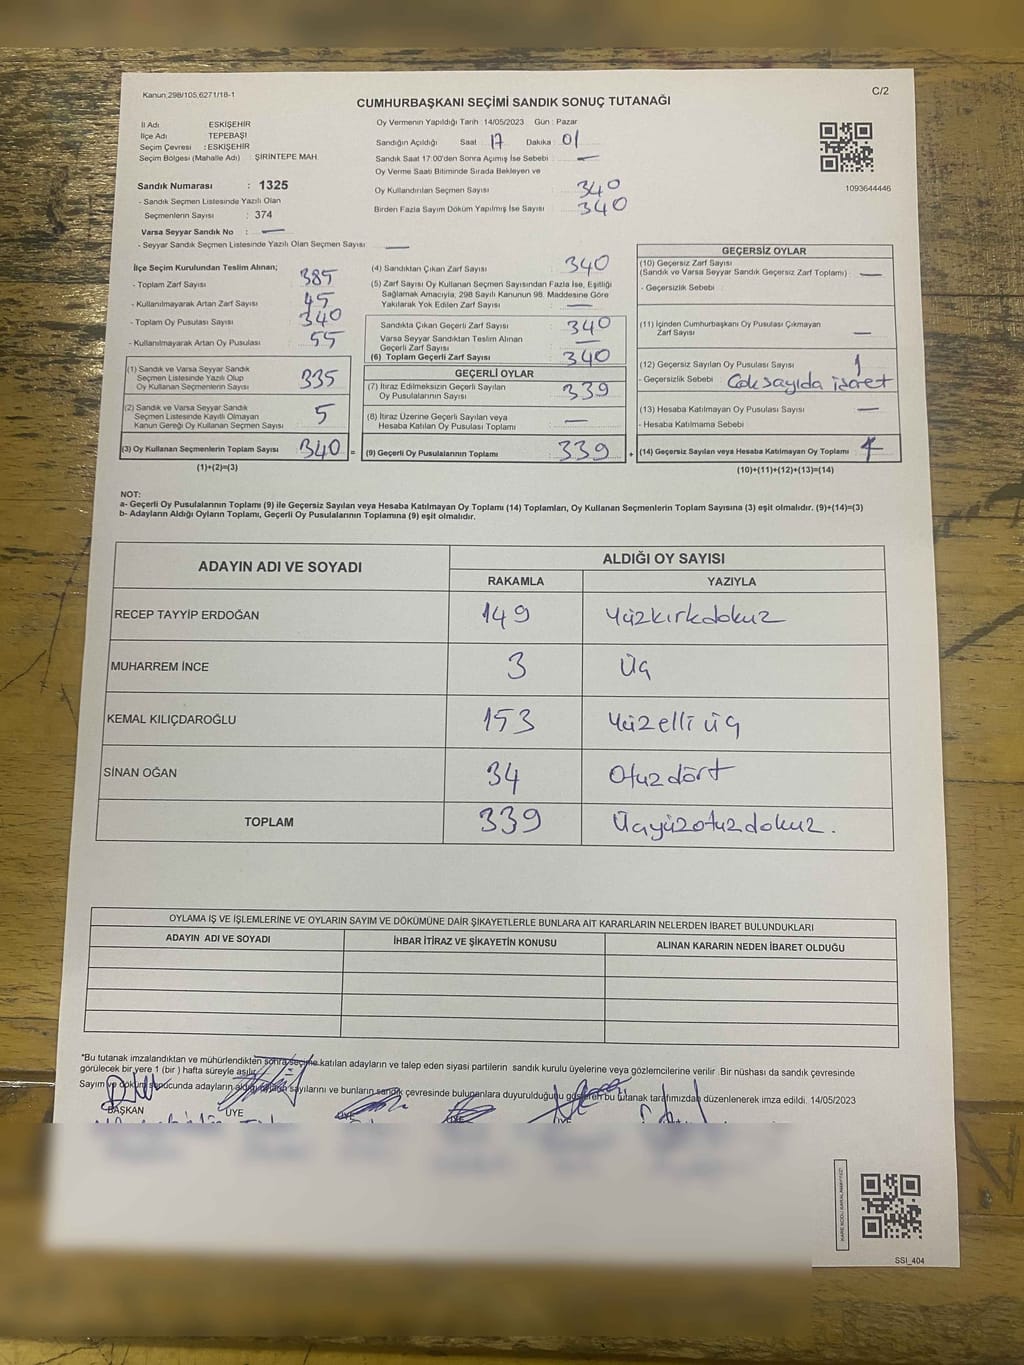 Kanun 298/105,6271/18-1
C/2
CUMHURBAŞKANI SEÇİMİ SANDIK SONUÇ TUTANAĞI
İl Adı ESKİŞEHİR
İlçe Adı TEPEBAŞI
Seçim Çevresi : ESKİŞEHİR
Seçim Bölgesi (Mahalle Adı) ŞİRİNTEPE MAH.
Sandık Numarası : 1325
- Sandık Seçmen Listesinde Yazılı Olan
Seçmenlerin Sayısı : 374
Varsa Seyyar Sandık No : —
- Seyyar Sandık Seçmen Listesinde Yazılı Olan Seçmen Sayısı —
Oy Vermenin Yapıldığı Tarih : 14/05/2023 Gün : Pazar
Sandığın Açıldığı Saat 17 Dakika 01
Sandık Saat 17:00'den Sonra Açımış İse Sebebi —
Oy Verme Saati Bitiminde Sırada Bekleyen ve
Oy Kullandırılan Seçmen Sayısı 340
Birden Fazla Sayım Döküm Yapılmış İse Sayısı 340
1093644446
İlçe Seçim Kurulundan Teslim Alınan;
- Toplam Zarf Sayısı 385
- Kullanılmayarak Artan Zarf Sayısı 45
- Toplam Oy Pusulası Sayısı 340
- Kullanılmayarak Artan Oy Pusulası 55
(1) Sandık ve Varsa Seyyar Sandık
Seçmen Listesinde Yazılı Olup
Oy Kullanan Seçmenlerin Sayısı 335
(2) Sandık ve Varsa Seyyar Sandık
Seçmen Listesinde Kayıtlı Olmayan
Kanun Gereği Oy Kullanan Seçmen Sayısı 5
(3) Oy Kullanan Seçmenlerin Toplam Sayısı 340 =
(1)+(2)=(3)
(4) Sandıktan Çıkan Zarf Sayısı 340
(5) Zarf Sayısı Oy Kullanan Seçmen Sayısından Fazla İse, Eşitliği
Sağlamak Amacıyla, 298 Sayılı Kanunun 98. Maddesine Göre
Yakılarak Yok Edilen Zarf Sayısı —
Sandıkta Çıkan Geçerli Zarf Sayısı 340
Varsa Seyyar Sandıktan Teslim Alınan
Geçerli Zarf Sayısı —
(6) Toplam Geçerli Zarf Sayısı 340
GEÇERLİ OYLAR
(7) İtiraz Edilmeksizin Geçerli Sayılan
Oy Pusulalarının Sayısı 339
(8) İtiraz Üzerine Geçerli Sayılan veya
Hesaba Katılan Oy Pusulası Toplamı —
(9) Geçerli Oy Pusulalarının Toplamı 339 +
GEÇERSİZ OYLAR
(10) Geçersiz Zarf Sayısı
(Sandık ve Varsa Seyyar Sandık Geçersiz Zarf Toplamı) : —
- Geçersizlik Sebebi
(11) İçinden Cumhurbaşkanı Oy Pusulası Çıkmayan
Zarf Sayısı —
(12) Geçersiz Sayılan Oy Pusulası Sayısı 1
- Geçersizlik Sebebi Çok sayıda işaret
(13) Hesaba Katılmayan Oy Pusulası Sayısı —
- Hesaba Katılmama Sebebi
(14) Geçersiz Sayılan veya Hesaba Katılmayan Oy Toplamı 1
(10)+(11)+(12)+(13)=(14)
NOT:
a- Geçerli Oy Pusulalarının Toplamı (9) ile Geçersiz Sayılan veya Hesaba Katılmayan Oy Toplamı (14) Toplamları, Oy Kullanan Seçmenlerin Toplam Sayısına (3) eşit olmalıdır. (9)+(14)=(3)
b- Adayların Aldığı Oyların Toplamı, Geçerli Oy Pusulalarının Toplamına (9) eşit olmalıdır.
ADAYIN ADI VE SOYADI ALDIĞI OY SAYISI
RAKAMLA YAZIYLA
RECEP TAYYİP ERDOĞAN 149 Yüzkırkdokuz
MUHARREM İNCE 3 Üç
KEMAL KILIÇDAROĞLU 153 Yüzelli üç
SİNAN OĞAN 34 Otuz dört
TOPLAM 339 Üçyüzotuzdokuz.
OYLAMA İŞ VE İŞLEMLERİNE VE OYLARIN SAYIM VE DÖKÜMÜNE DAİR ŞİKAYETLERLE BUNLARA AİT KARARLARIN NELERDEN İBARET BULUNDUKLARI
ADAYIN ADI VE SOYADI İHBAR İTİRAZ VE ŞİKAYETİN KONUSU ALINAN KARARIN NEDEN İBARET OLDUĞU
*Bu tutanak imzalandıktan ve mühürlendikten sonra seçime katılan adayların ve talep eden siyasi partilerin sandık kurulu üyelerine veya gözlemcilerine verilir. Bir nüshası da sandık çevresinde
görülecek bir yere 1 (bir) hafta süreyle asılır.
Sayım ve döküm sonucunda adayların aldığı sayılarını ve bunların sandık çevresinde bulunanlara duyurulduğunu gösteren bu tutanak tarafımızdan düzenlenerek imza edildi. 14/05/2023
BAŞKAN ÜYE ÜYE ÜYE
SSI_404